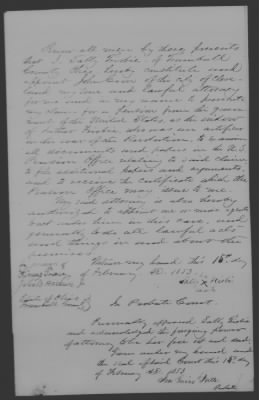 Know all men by these presents
that I Sally Frisbie of Trumbull
County Ohio hereby constitute and
appoint John Crowe of the city of Cleve-
land my true and lawful attorney
for me and in my name to prosecute
my claim for a pension from the Govern-
ment of the United States, as the widow
of Luther Frisbie, who was an artificer
in the war of the Revolution, to examine
all documents and papers in the U.S.
Pension Office relating to said claim
to file additional papers and arguments,
and to receive the certificate which the
Pension Office may issue to me.
My said attorney is also hereby
authorized to appoint one or more agents
to act under him in this case, and
generally to do all lawful acts
and things in and about the
premises
Witness my hand this 16th day
of February AD. 1853
Sally Frisbie
State of Ohio
Trumbull County
In Probate Court.
Personally appeared Sally Frisbie
and acknowledged the foregoing power
of attorney to be her free act and deed.
Given under my hand and
the seal of said Court this 16th day
of February AD. 1853
Probate